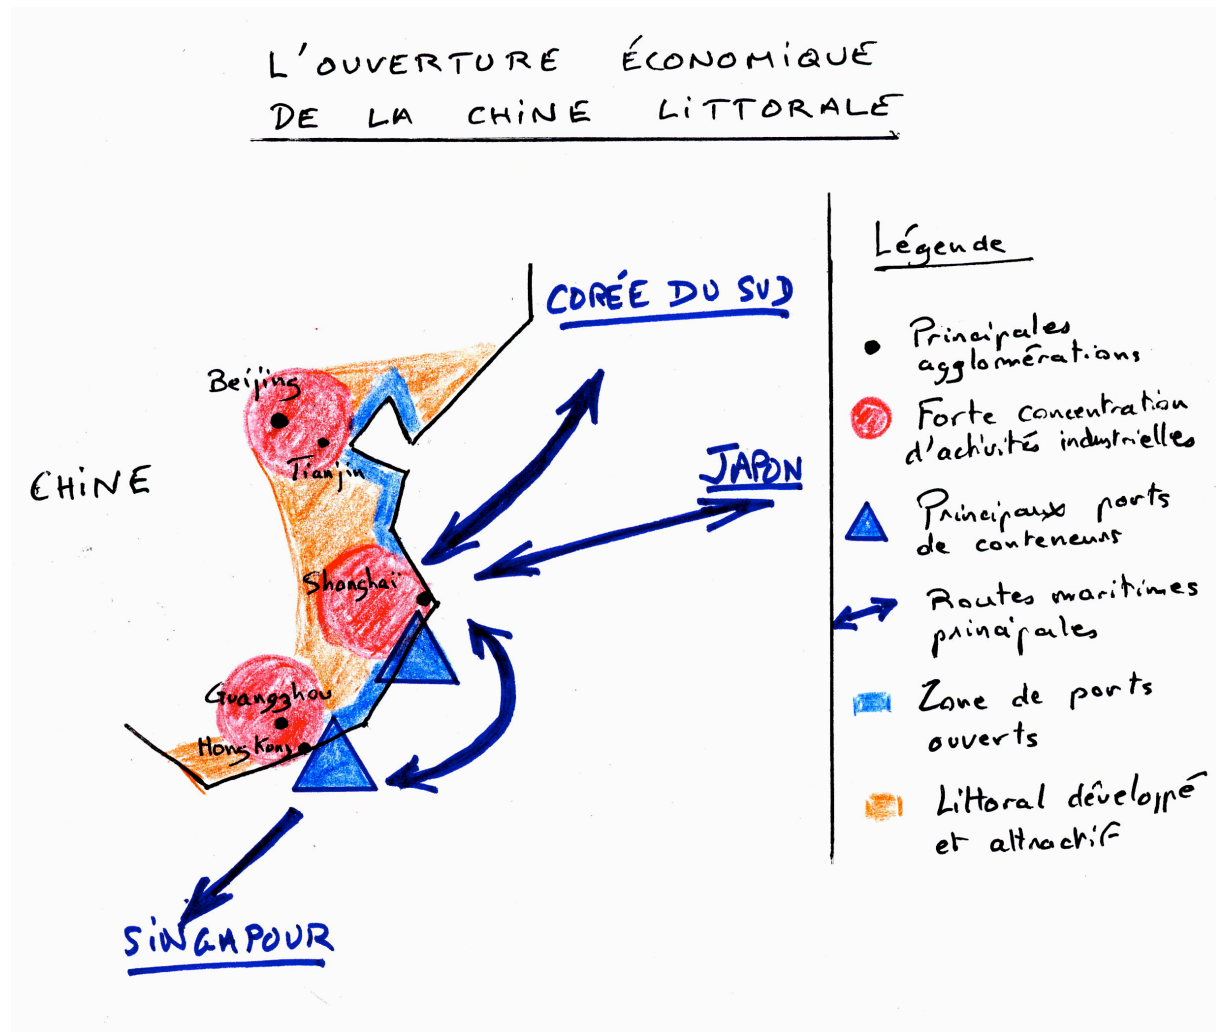 L'OUVERTURE ÉCONOMIQUE
DE LA CHINE LITTORALE
CORÉE DU SUD
Beijing
Tianjin
CHINE
JAPON
Shanghaï
Guangzhou
Hong Kong
SINGAPOUR
Légende
Principales
agglomérations
Forte concentration
d'activités industrielles
Principaux ports
de conteneurs
Routes maritimes
principales
Zone de ports
ouverts
Littoral développé
et attractif